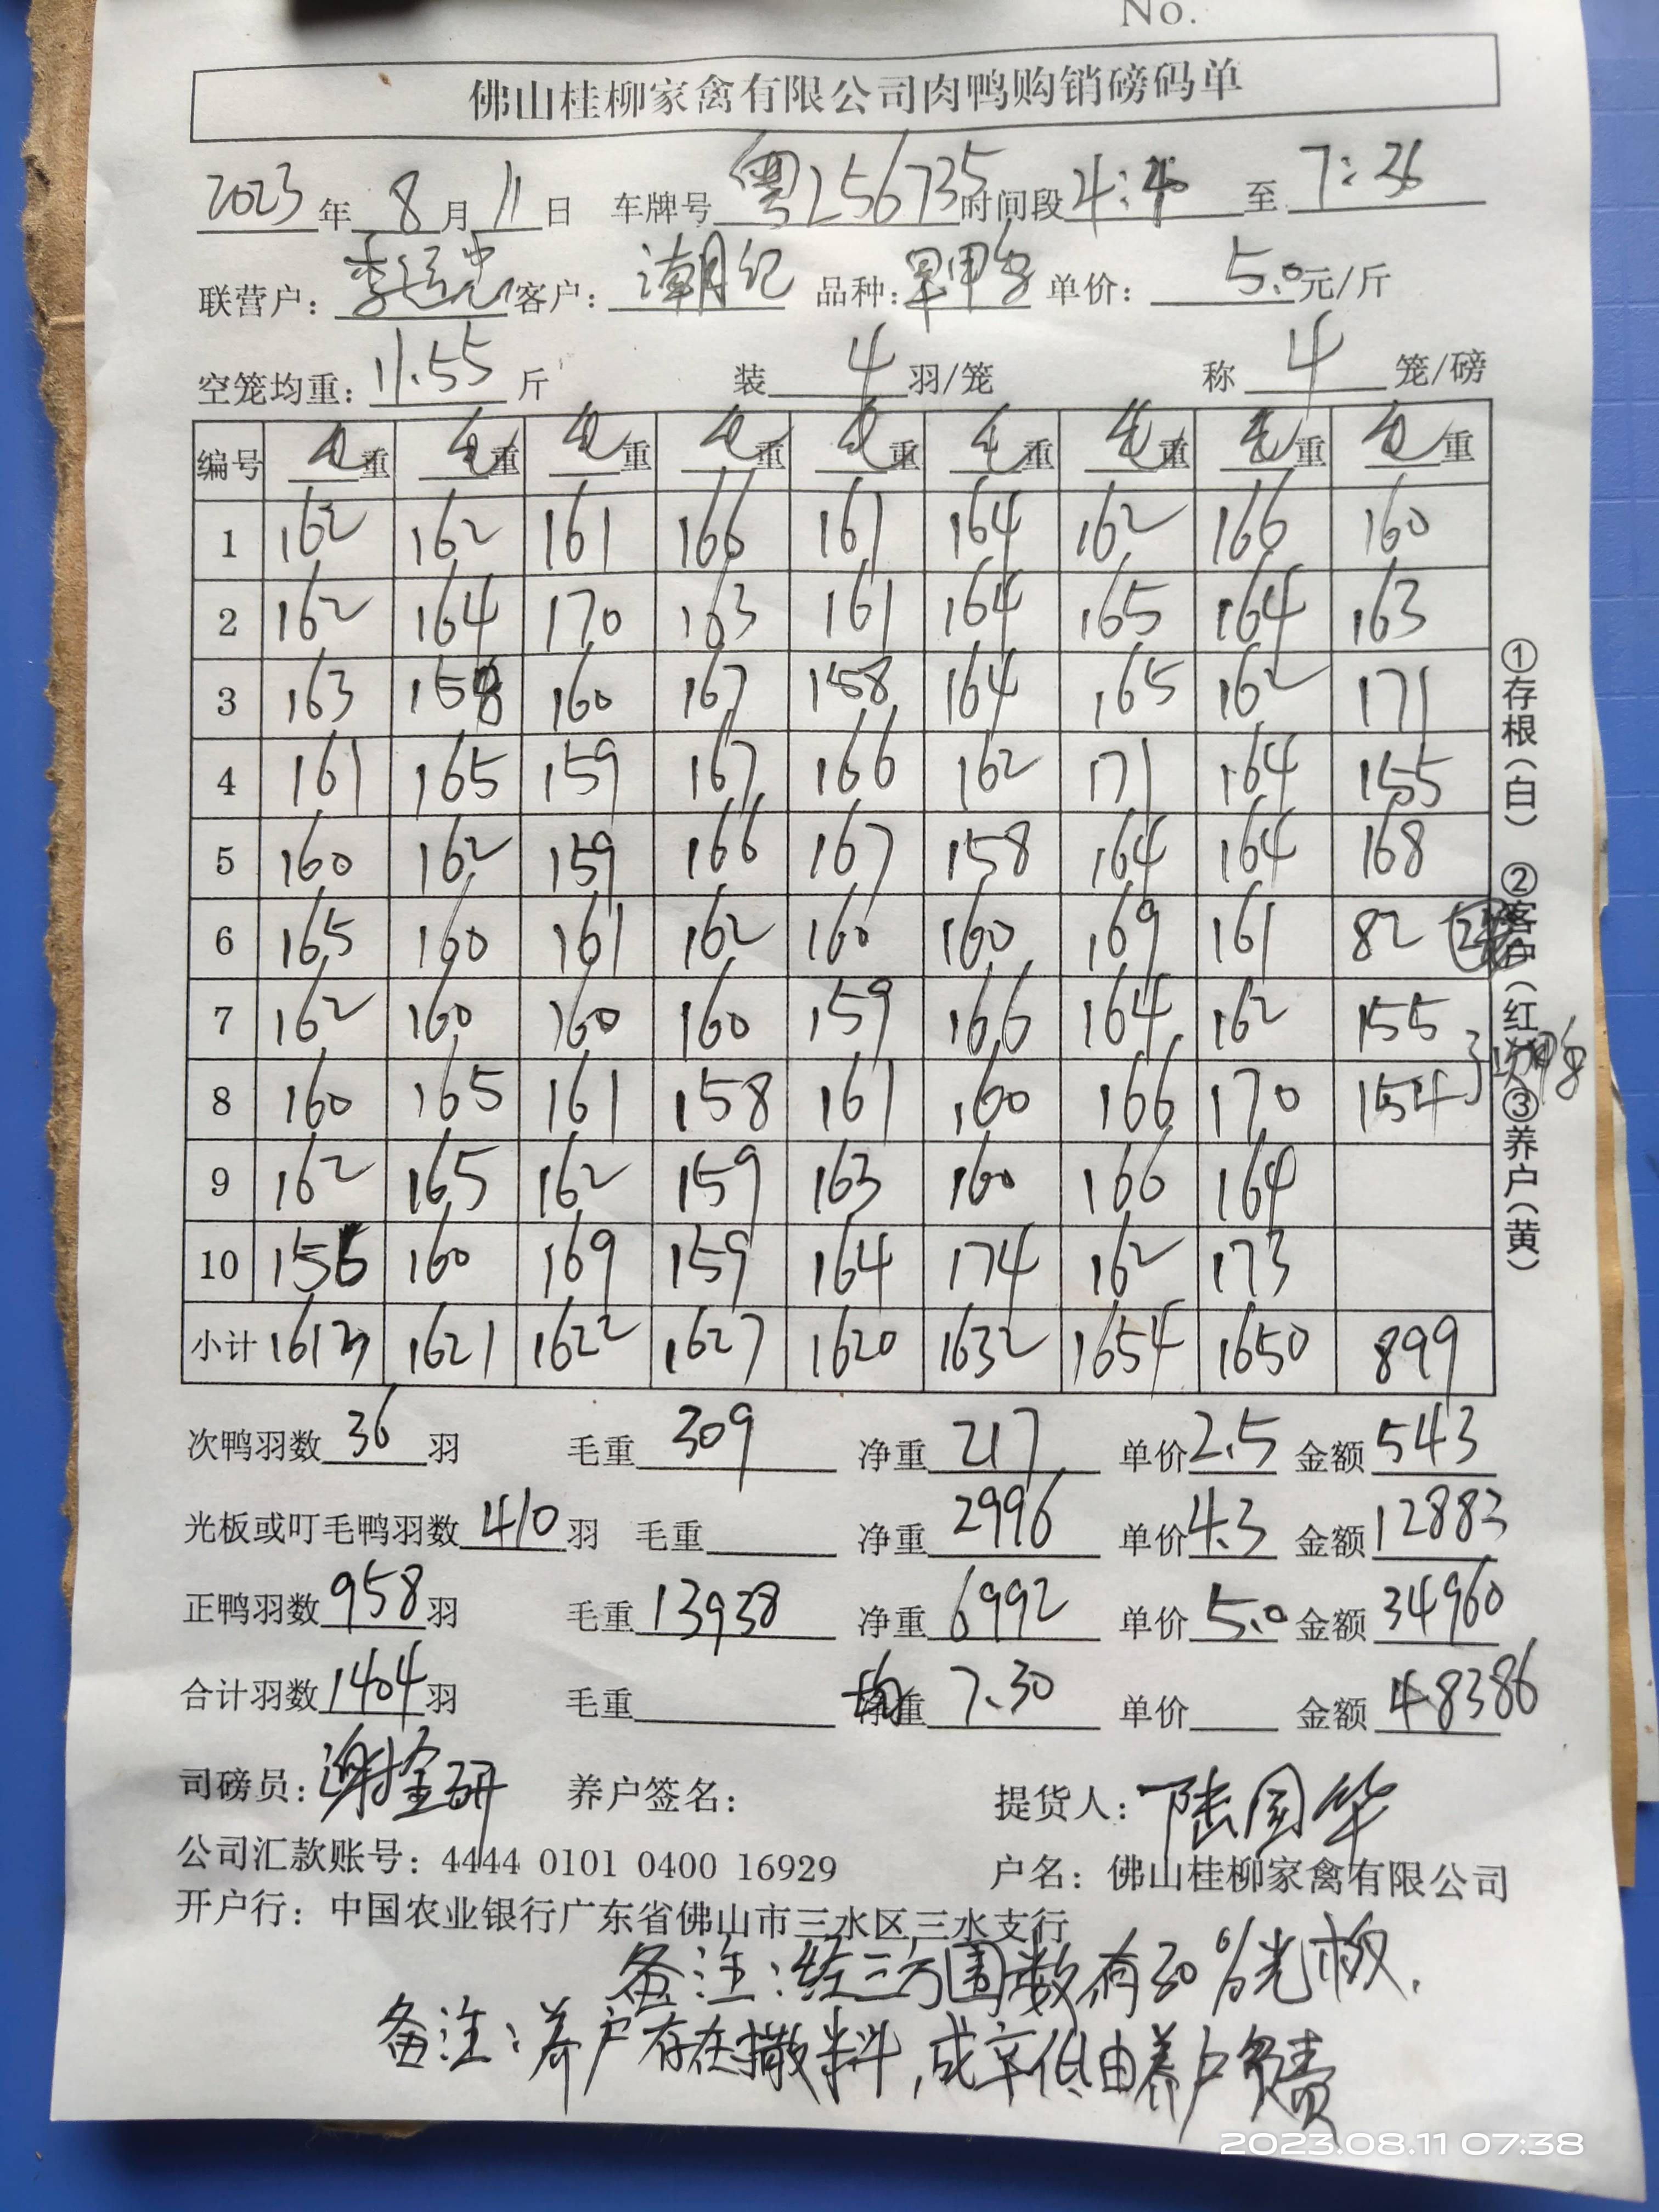 No.
佛山桂柳家禽有限公司肉鸭购销磅码单
2023年 8月 11日 车牌号 粤Z56735 时间段 4:40 至 7:36
联营户: 李运忠 客户: 潮纪 品种: 单价: 5.0元/斤
空笼均重: 11.55 斤 装 4 羽/笼 称 4 笼/磅
编号 毛重 毛重 毛重 毛重 毛重 毛重 毛重 毛重 毛重
1 162 162 161 166 161 164 162 166 160
2 162 164 170 163 161 164 165 164 163
3 163 158 160 167 158 164 165 162 171
4 161 165 159 167 166 162 171 164 155
5 160 162 159 166 167 158 164 164 168
6 165 160 161 162 160 160 169 161 82
7 162 160 160 160 159 166 164 162 155
8 160 165 161 158 161 160 166 170 154
9 162 165 162 159 163 160 166 164
10 156 160 169 159 164 174 162 173
小计 1613 1621 1622 1627 1620 1632 1654 1650 899
次鸭羽数 36 羽 毛重 309 净重 217 单价 2.5 金额 543
光板或叮毛鸭羽数 410 羽 毛重 净重 2996 单价 4.3 金额 12883
正鸭羽数 958 羽 毛重 13938 净重 6992 单价 5.0 金额 34960
合计羽数 1404 羽 毛重 均重 7.30 单价 金额 48386
司磅员: 养户签名: 提货人: 陆国华
公司汇款账号: 4444 0101 0400 16929 户名: 佛山桂柳家禽有限公司
开户行: 中国农业银行广东省佛山市三水区三水支行
备注:经三方围数有30%光板.
备注:养户存在撒料,成率低由养户负责
①存根(白) ②客户(红) ③养户(黄)
2023.08.11 07:38